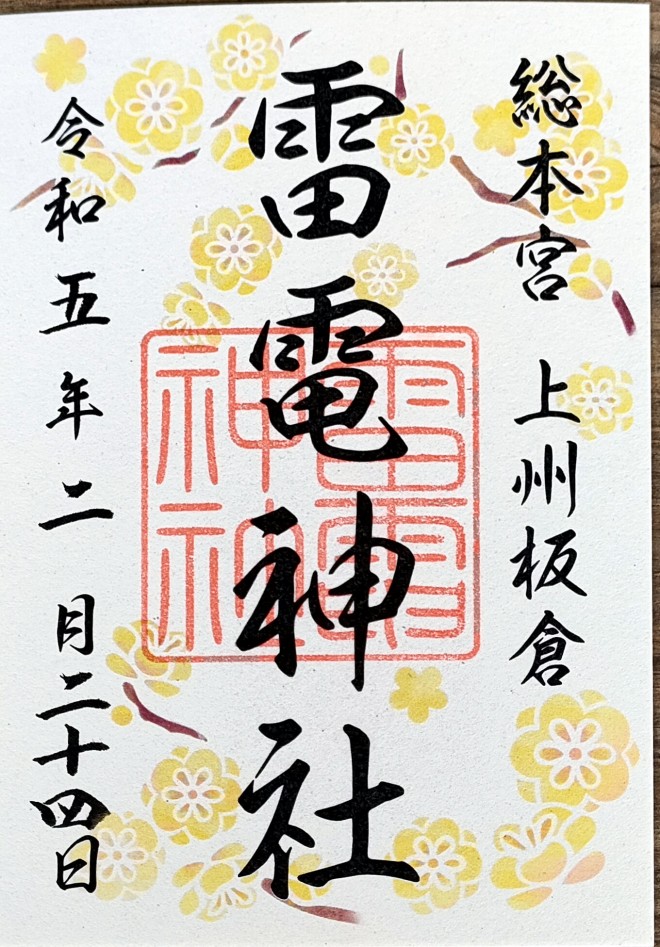 総本宮 上州板倉
雷電神社
令和五年二月二十四日